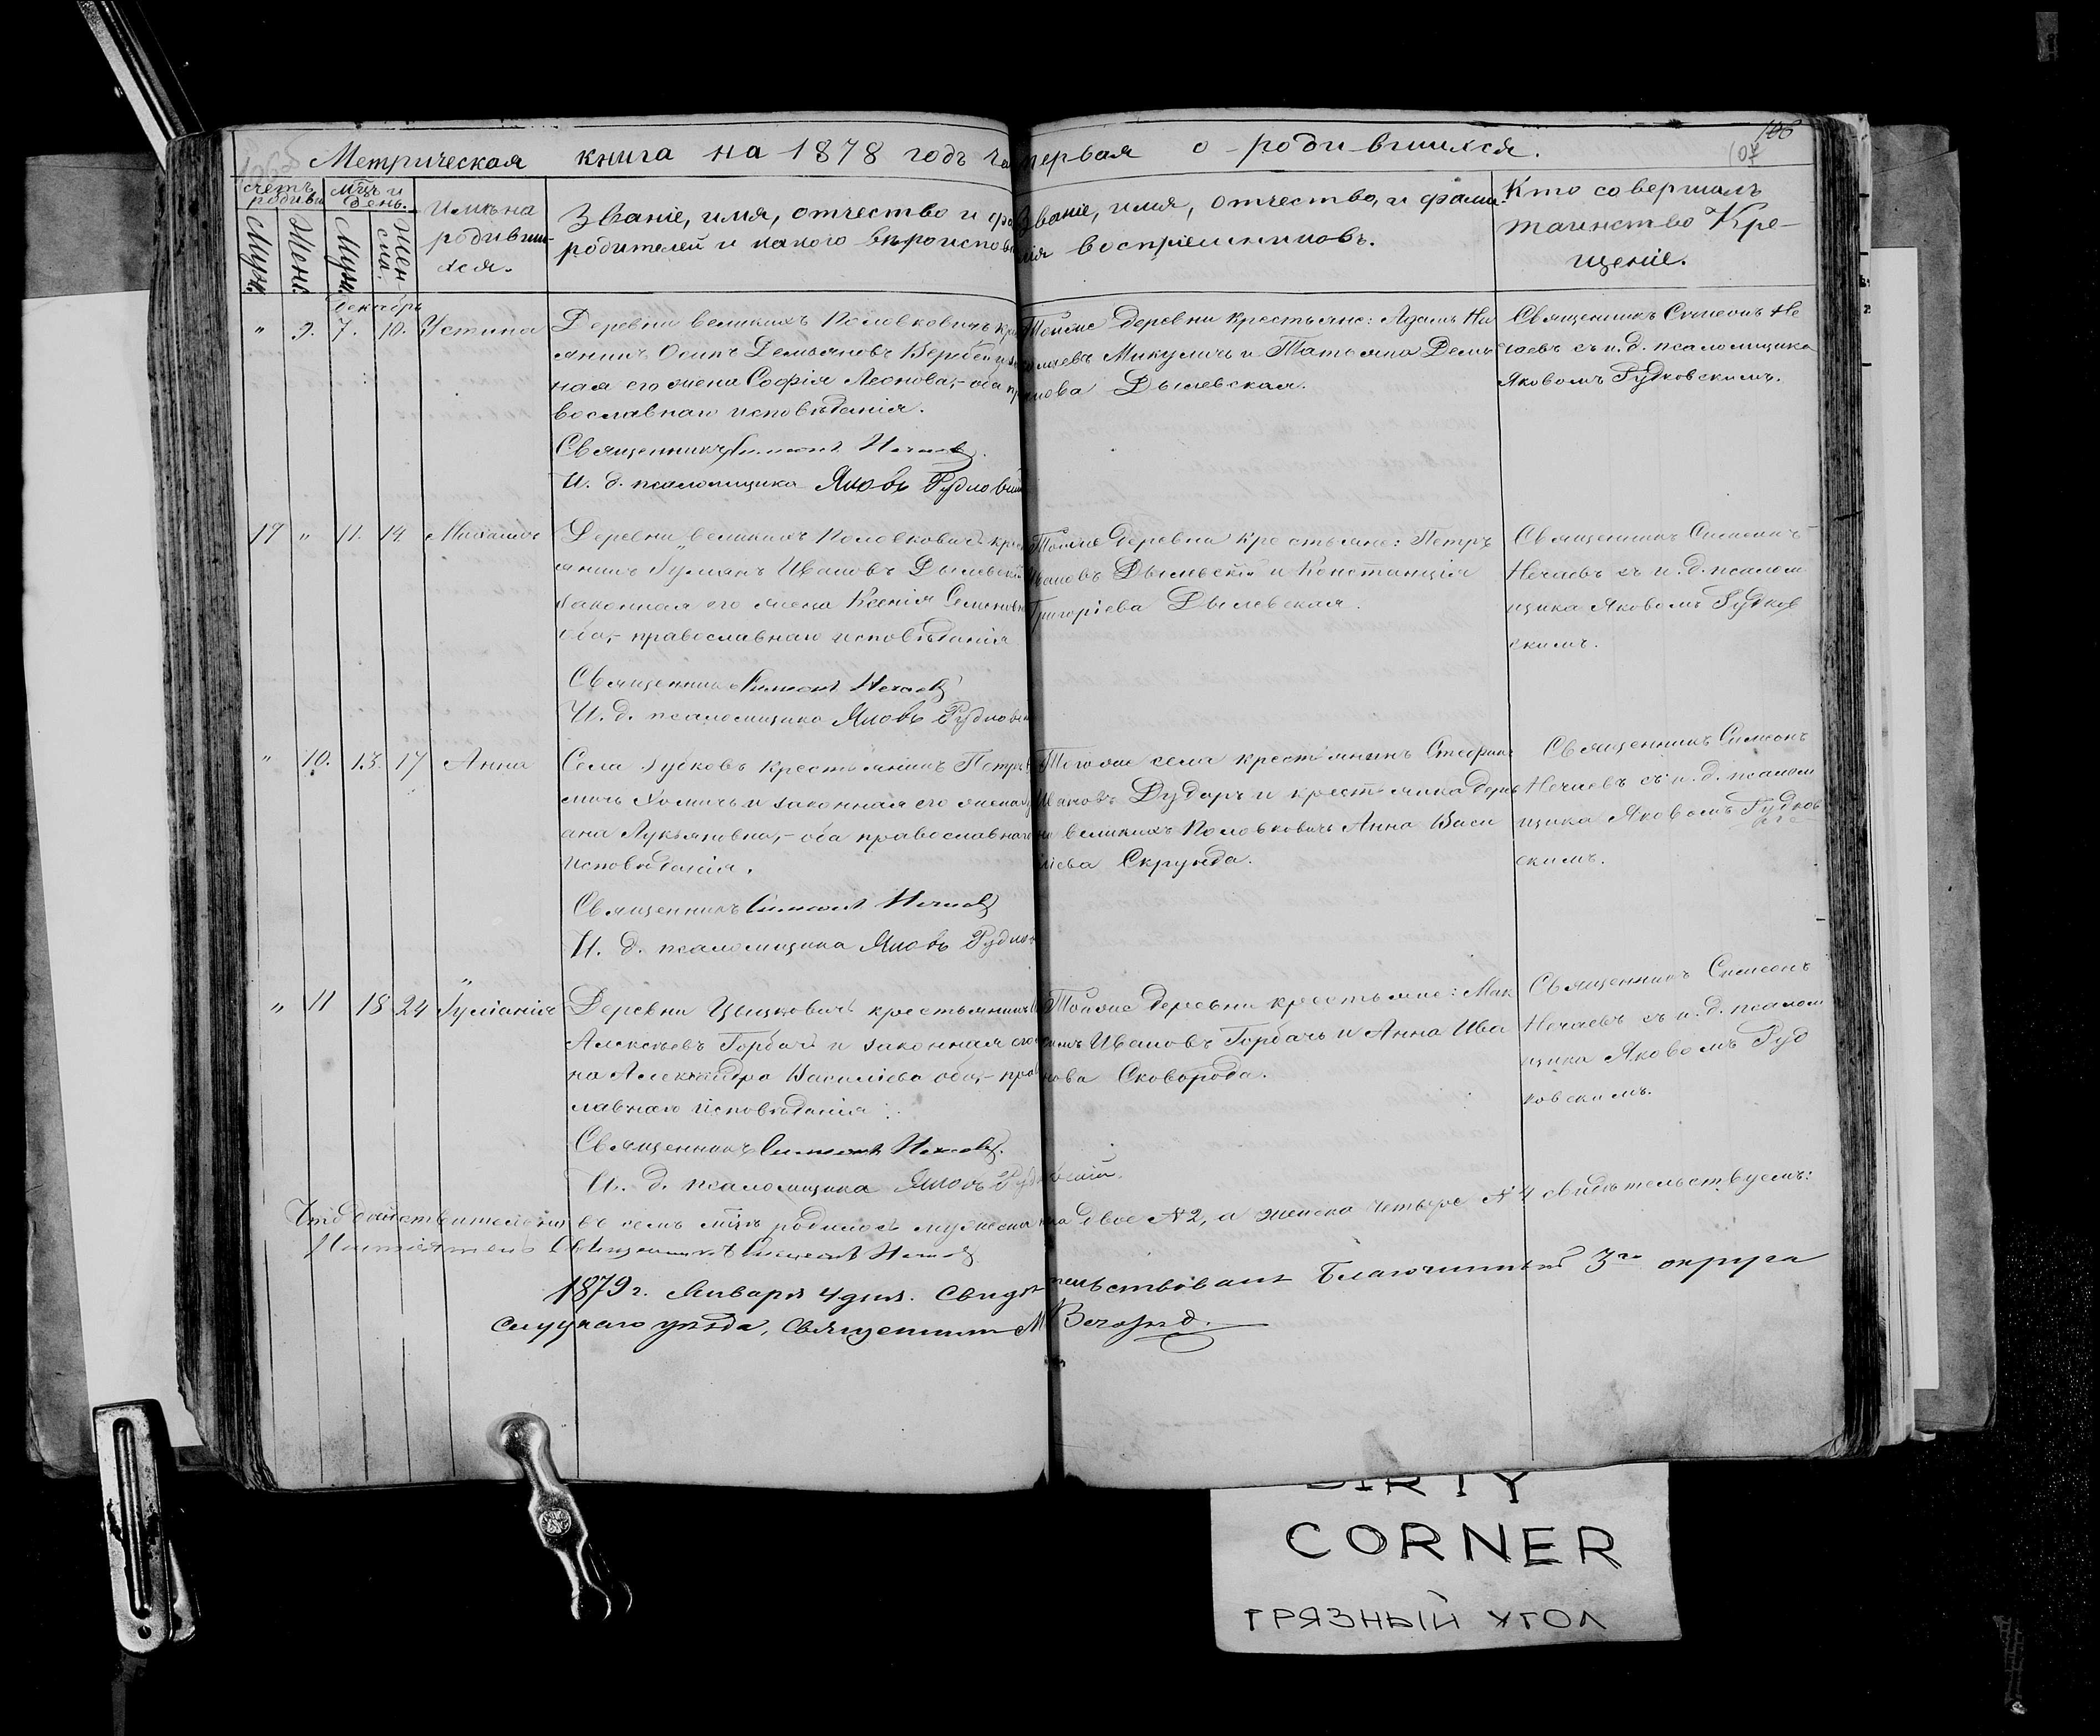 Метрическая книга на 1878 годъ ча первая о родившихся.
106
107
счетъ родивш
мцъ и день.
Муж.
Жен.
Муж.
Жен
Имѣна родивши-
хся.
Званіе, имя, отчество и фа
родителей и какого вѣроиспов
Званіе, имя, отчество, и фами-
лія воспріемниковъ.
Кто совершалъ
таинство Кре-
щеніе.
Декабрь
" 9. 7. 10. Устина
Деревни Великихъ Половковичъ кре
янинъ Осипъ Демьяновъ Вербе
ная его жена Софія Леонова,- оба пр
вославнаго исповѣданія.
Священникъ Симеонъ Нечаевъ.
И. д. псаломщика Яковъ Рудковскій
Тойже деревни крестьяне: Адамъ Ни
колаевъ Микуличъ и Татьяна Демь
янова Дылевская.
Священникъ Симеонъ Не
чаевъ съ и. д. псаломщика
Яковомъ Рудковскимъ.
17 " 11. 14. Михаилъ
Деревни Великихъ Половковичъ крест
янинъ Іуліанъ Ивановъ Дылевскій
Законная его жена Ксенія Семеновна
оба,- православнаго исповѣданія
Священникъ Симеонъ Нечаевъ
И. д. псаломщика Яковъ Рудковск
Тойже деревни крестьяне: Петръ
Ивановъ Дылевскій и Констанція
Григоріева Дылевская.
Священникъ Симеонъ
Нечаевъ съ и. д. псалом
щика Яковомъ Рудков
скимъ.
" 10. 13. 17 Анна
Села крестьянинъ Петръ
Хомичъ и законная его жена
ана Лукьяновна,- оба православнаго
исповѣданія.
Священникъ Симеонъ Нечаевъ
И. д. псаломщика Яковъ Рудков
Тогоже села крестьянинъ Стефанъ
Ивановъ Дударъ и крестьянка дерев
ни Великихъ Половковичъ Анна Васи
ліева Скрунда.
Священникъ Симеонъ
Нечаевъ съ и. д. псалом
щика Яковомъ Рудков
скимъ.
" 11 18 24 Іуліанія
Деревни Цыцковичъ крестьянинъ
Алексѣевъ Горбачъ и законная его
на Александра Василіева оба,- прав
лавнаго исповѣданія.
Священникъ Симеонъ Нечаевъ.
И. д. псаломщика Яковъ Рудковскій.
Тойже деревни крестьяне: Мак
симъ Ивановъ Горбачъ и Анна Ива
нова Сковорода.
Священникъ Симеонъ
Нечаевъ съ и. д. псалом
щика Яковомъ Руд
ковскимъ.
Что дѣйствительно въ семъ мцѣ родилось мужеска пола двое №2, а женска четыре №4 свидѣтельствуемъ:
Священникъ Симеонъ Нечаевъ
1879 г. Января 4 дня. Свидѣтельствовалъ Благочинный 3го округа
Слуцкаго уѣзда, Священникъ М
DIRTY
CORNER
ГРЯЗНЫЙ УГОЛ